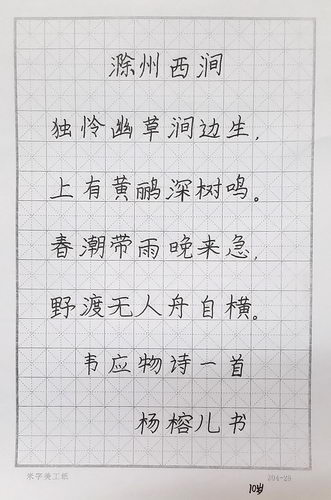 滁州西涧
独怜幽草涧边生，
上有黄鹂深树鸣。
春潮带雨晚来急，
野渡无人舟自横。
韦应物诗一首
杨榕儿书
米字美工纸 204-29
10岁